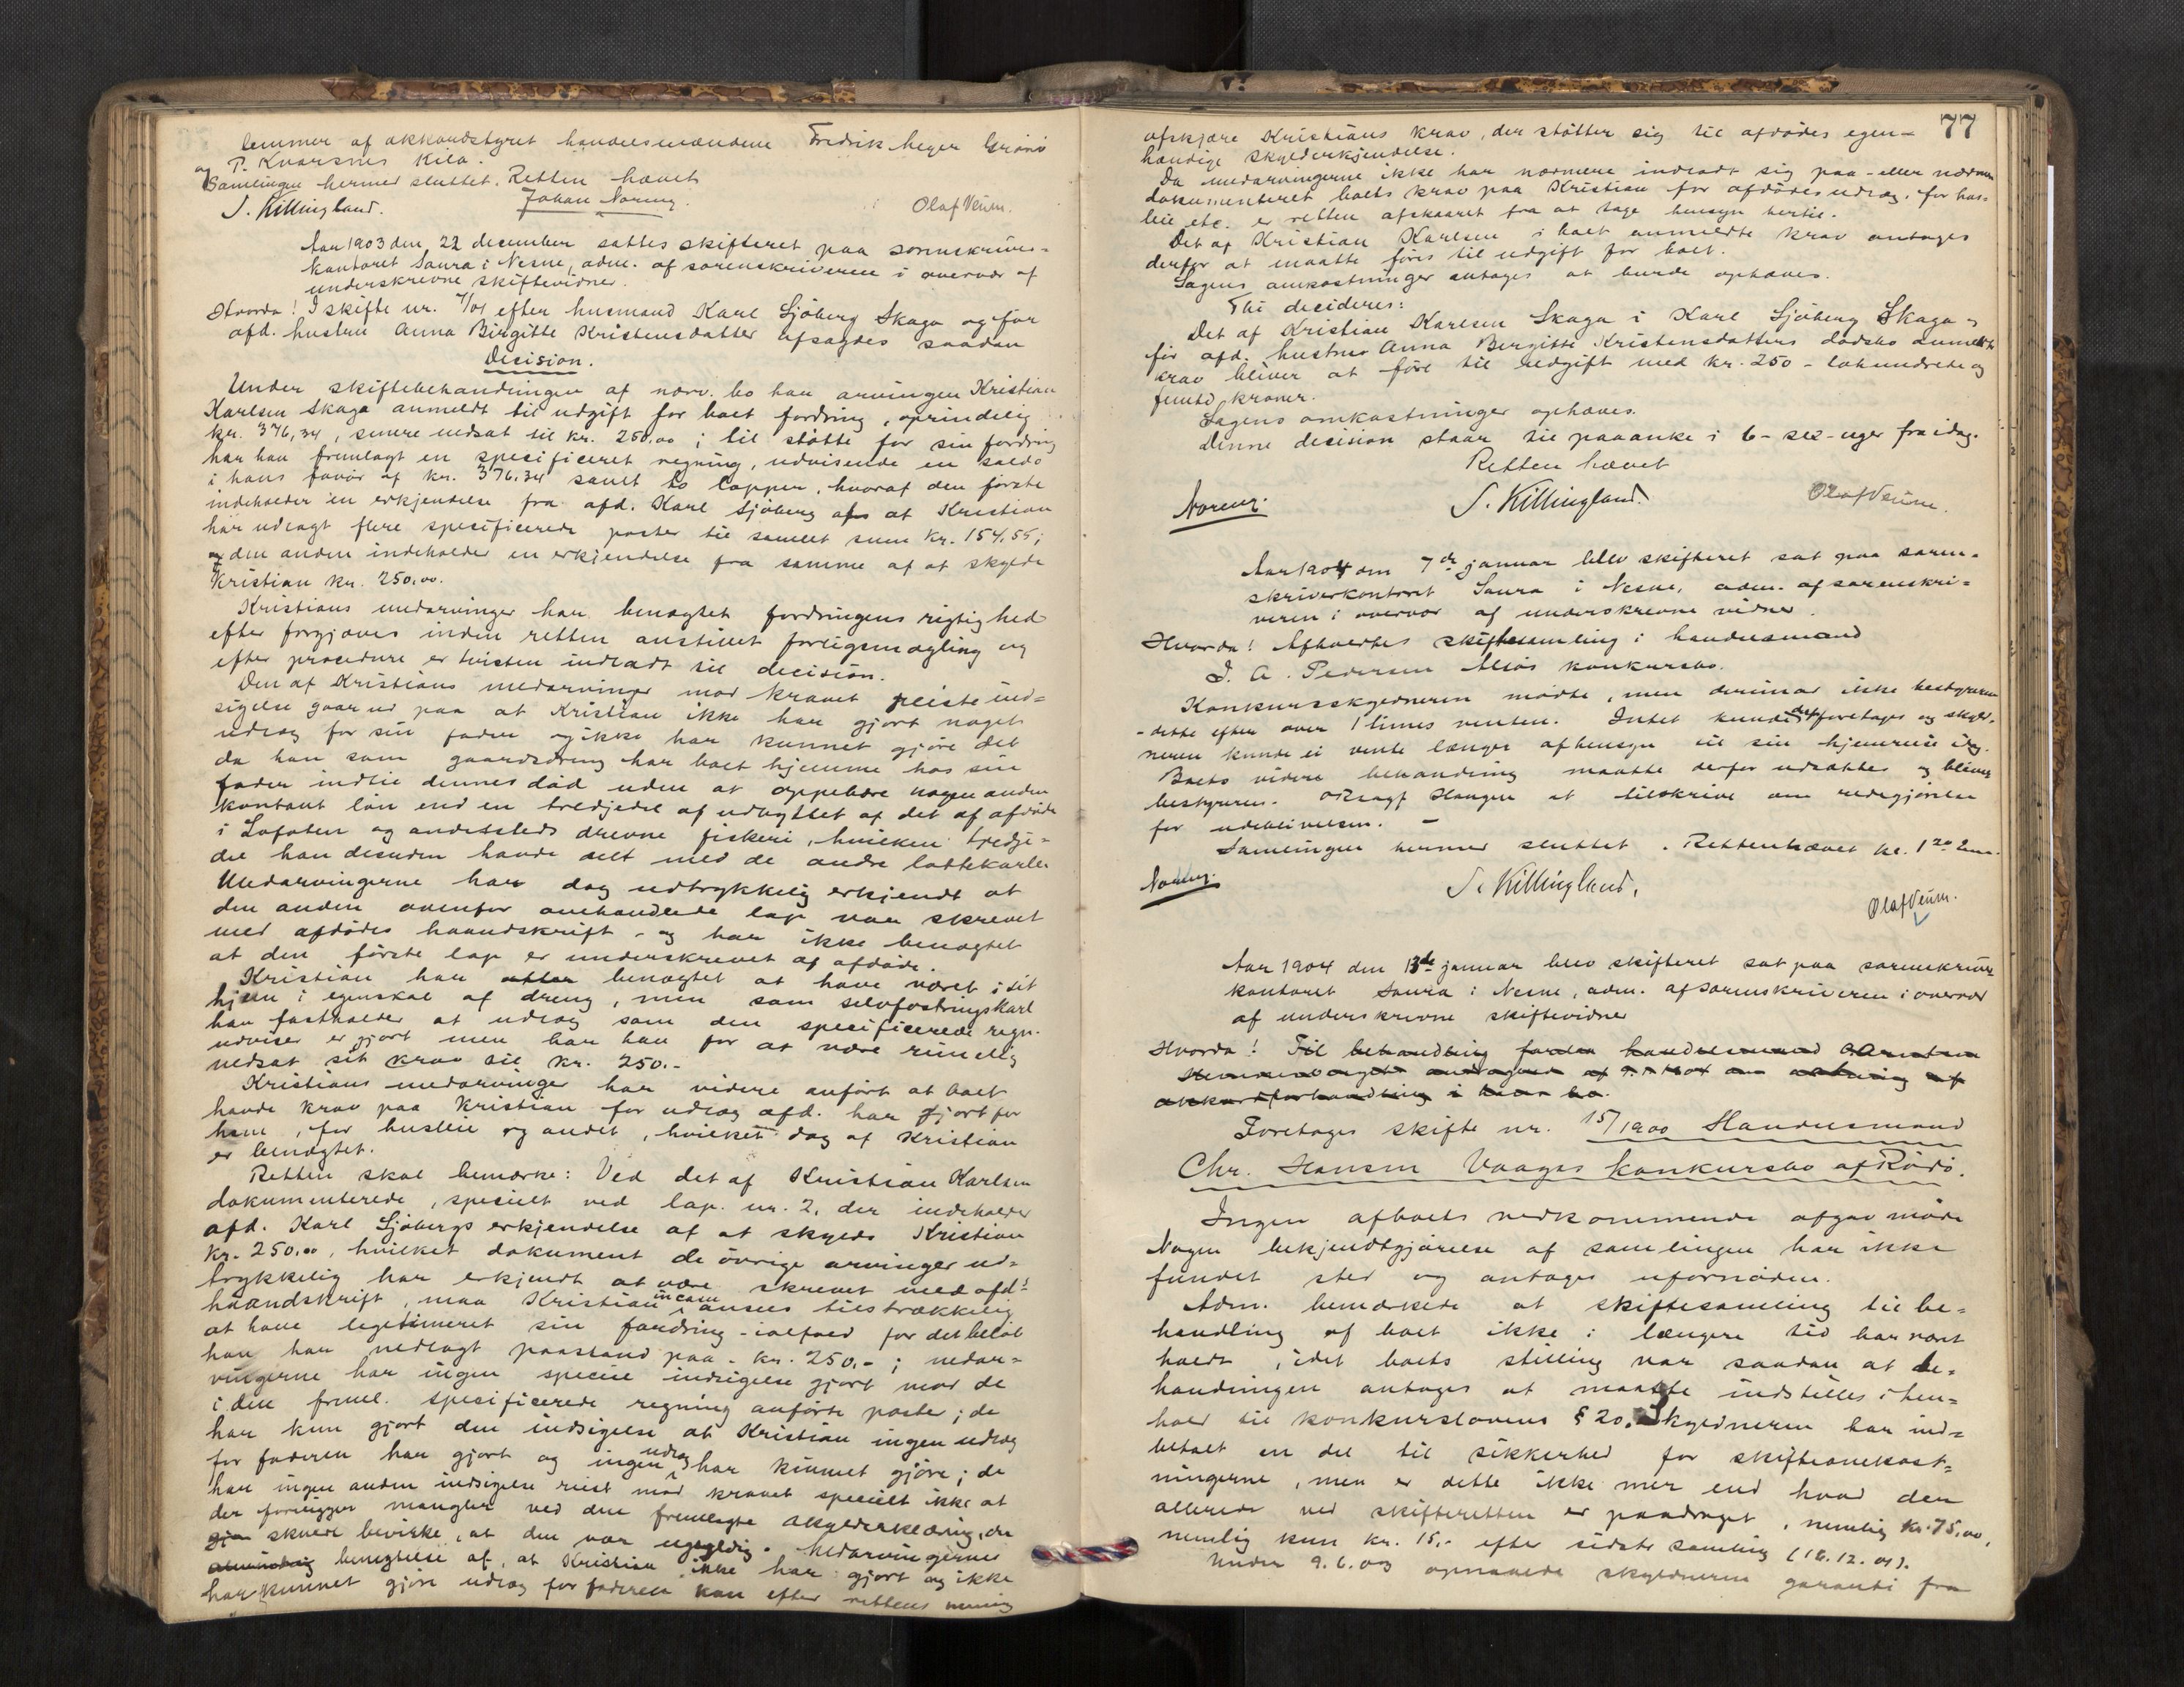 lemmer af akkordstyret handelsmændene Fredrik Meyer Grönö
og P. Kvarsnes Kila.
Samlingen hermed sluttet. Retten hævet
S. Killingland. Johan Noreng. Olaf Veum.
Aar 1903 den 22 december sattes skifteret paa sorenskriver-
kontoret Saura i Nesne, adm. af sorenskriveren i overvær af
underskrevne skiftevidner.
Hvorda! I skifte nr. 7/01 efter husmand Karl Sjöberg Skaga og før
afd. hustru Anna Birgitte Kristensdatter afsagdes saadan
Decision.
Under skiftebehandlingen af nærv. bo har arvingen Kristian
Karlsen Skaga anmeldt til udgift for boet fordring, oprindelig
kr. 376,34, senere nedsat til kr. 250,00; til stötte for sin fordring
har han fremlagt en specificeret regning, udvisende en saldo
i hans favör af kr. 376,34 samt to lapper, hvoraf den förste
indeholder en erkjendelse fra afd. Karl Sjöberg af at Kristian
har udlagt flere specificerede poster til samlet sum kr. 154,55;
og den anden indeholder en erkjendelse fra samme af at skylde
Kristian kr. 250,00.
Kristians medarvinger har benægtet fordringens rigtighed
efter forgjæves inden retten anstillet forligsmægling og
efter procedure er tvisten indladt til decision.
Den af Kristians medarvinger mod kravet reiste ind-
sigelse gaar ud paa at Kristian ikke har gjort noget
udlæg for sin fader og ikke har kunnet gjöre det
da han som gaardsdreng har boet hjemme hos sin
fader indtil dennes död uden at oppebære nogen anden
kontant lön end en tredjedel af udbyttet af det af afdöde
i Lofoten og andetsteds drevne fiskeri, hvilken tredje-
del han desuden havde delt med de andre lottekarler
Medarvingerne har dog udtrykkelig erkjendt at
den anden ovenfor omhandlede lap var skrevet
med afdödes haandskrift - og har ikke benægtet
at den förste lap er underskrevet af afdöde.
Kristian har atter benægtet at have været i sit
hjem i egenskab af dreng, men som selvfostringskarl
han fastholder at udlæg som den specificerede regn.
udviser er gjort men har han for at være rimelig
nedsat sit krav til kr. 250.-
Kristians medarvinger har videre anfört at boet
havde krav paa Kristian for udlæg afd. har gjort for
ham, for husleie og andet, hvilket dog af Kristian
er benægtet.
Retten skal bemærke: Ved det af Kristian Karlsen
dokumenterede, specielt ved lap. nr. 2, der indeholder
afd. Karl Sjöbergs erkjendelse af at skylde Kristian
kr. 250,00, hvilket dokument de övrige arvinger ud-
trykkelig har erkjendt at være skrevet med afd!
haandskrift, maa Kristian in casu ansees tilstrækkelig
at have legetimeret sin fordring - ialfald for det belöb
han har nedlagt paastand paa - kr. 250,-; medar-
vingerne har ingen speciel indsigelse gjort mod de
i den freml. specificerede regning anförte poster; de
har kun gjort den indsigelse at Kristian ingen udlæg
for faderen har gjort og ingen udlæg har kunnet gjöre; de
har ingen anden indsigelse reist mod kravet specielt ikke at
der foreligger mangler ved den fremlagte skylderklæring, der
skulde bevirke, at den var ugyldig. Medarvingernes
benægtelse af, at Kristian ikke har gjort og ikke
har kunnet gjöre udlæg for faderen kan efter rettens mening
77
afskjære Kristians krav, der stötter sig til afdödes egen-
hændige skylderkjendelse.
Da medarvingerne ikke har nærmere indladt sig paa - eller nærmere
dokumenteret boets krav paa Kristian for afdödes udlæg, for hus-
leie etc. er retten afskaaret fra at tage hensyn hertil.
Det af Kristian Karlsen i boet anmeldte krav antages
derfor at maatte föres til udgift for boet.
Sagens omkostninger antages at burde ophæves.
Thi decideres:
Det af Kristian Karlsen Skaga i Karl Sjöberg Skaga -
før afd. hustru Anna Birgitte Kristensdatters dödsbo anmeldte
krav bliver at före til udgift med kr. 250 - tohundrede og
femti kroner.
Sagens omkostninger ophæves.
Denne decision staar til paaanke i 6 - sex - uger fra idag.
Retten hævet
Noreng. S. Killingland. Olaf Veum.
Aar 1904 den 7de januar blev skifteret sat paa soren-
skriverkontoret Saura i Nesne, adm. af sorenskri-
veren i overvær af underskrevne vidner.
Hvorda! Afholdtes skiftesamling i handelsmand
J. A. Pedersen konkursbo.
Konkursskyldneren mödte, men derimod ikke bestyreren
- dette efter over 1 times venten. Intet kunde foretages og skyld-
neren kunde ei vente længer af hensyn til sin hjemreise idag.
Boets videre behandling maatte derfor udsættes og bliver
bestyreren. Haugen at tilskrive om redegjörelse
for udeblivelsen. -
Samlingen hermed sluttet. Retten hævet kl. 1 20 Em.
Noreng. S. Killingland, Olaf Veum.
Aar 1904 den 13de januar blev skifteret sat paa sorenskriver
kontoret Saura i Nesne, adm. af sorenskriveren i overvær
af underskrevne skiftevidner
Hvorda! Til behandling handelsmand
akkordforhandling i hans bo.
Foretages skifte nr. 15/1900 Handelsmand
Chr. Hansen Vaagas konkursbo af Rödö.
Ingen af boets vedkommende afgav möde
Nogen bekjendtgjörelse af samlingen har ikke
fundet sted og antages ufornöden.
Adm. bemærkede at skiftesamling til be-
handling af boet ikke i længere tid har været
holdt, idet boets stilling var saadan at be-
handlingen antages at maatte indstilles i hen-
hold til konkurslovens § 20. Skyldneren har ind-
betalt en del til sikkerhed for skifteomkost-
ningerne, men er dette ikke mer end hvad der
allerede ved skifteretten er paadraget, nemlig kr. 75,00,
nemlig kun kr. 15,- efter sidste samling (16.12.01).
Under 9.6.03 opnaaede skyldneren garanti fra